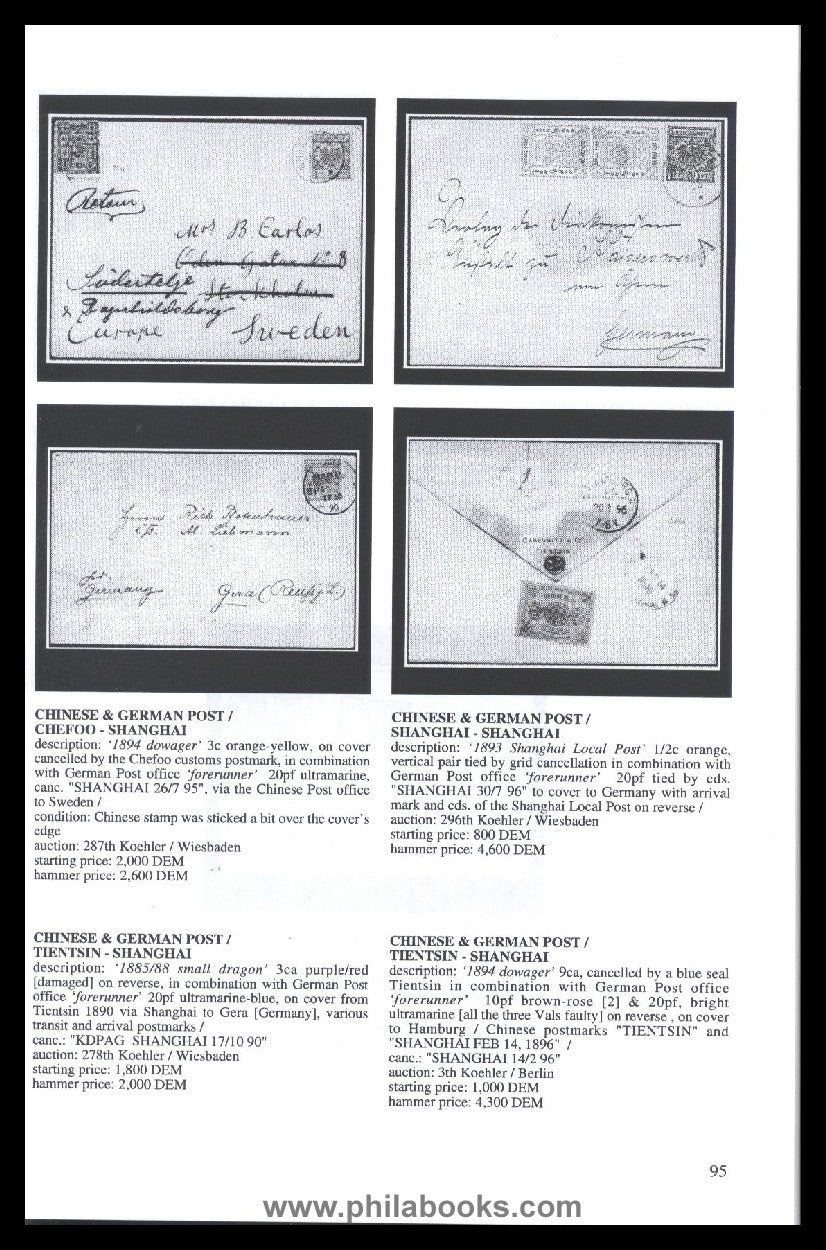 Retour
Mrs B Carlos
Södertelje
Europe
Sweden
Germany
Germany
Gera (Reuß j. L.)
96
TIENTSIN
CHINESE & GERMAN POST /
CHEFOO - SHANGHAI
description: '1894 dowager' 3c orange-yellow, on cover
cancelled by the Chefoo customs postmark, in combination
with German Post office 'forerunner' 20pf ultramarine,
canc. "SHANGHAI 26/7 95", via the Chinese Post office
to Sweden /
condition: Chinese stamp was sticked a bit over the cover's
edge
auction: 287th Koehler / Wiesbaden
starting price: 2,000 DEM
hammer price: 2,600 DEM
CHINESE & GERMAN POST /
SHANGHAI - SHANGHAI
description: '1893 Shanghai Local Post' 1/2c orange,
vertical pair tied by grid cancellation in combination with
German Post office 'forerunner' 20pf tied by cds.
"SHANGHAI 30/7 96" to cover to Germany with arrival
mark and cds. of the Shanghai Local Post on reverse /
auction: 296th Koehler / Wiesbaden
starting price: 800 DEM
hammer price: 4,600 DEM
CHINESE & GERMAN POST /
TIENTSIN - SHANGHAI
description: '1885/88 small dragon' 3ca purple/red
[damaged] on reverse, in combination with German Post
office 'forerunner' 20pf ultramarine-blue, on cover from
Tientsin 1890 via Shanghai to Gera [Germany], various
transit and arrival postmarks /
canc.: "KDPAG SHANGHAI 17/10 90"
auction: 278th Koehler / Wiesbaden
starting price: 1,800 DEM
hammer price: 2,000 DEM
CHINESE & GERMAN POST /
TIENTSIN - SHANGHAI
description: '1894 dowager' 9ca, cancelled by a blue seal
Tientsin in combination with German Post office
'forerunner' 10pf brown-rose [2] & 20pf, bright
ultramarine [all the three Vals faulty] on reverse , on cover
to Hamburg / Chinese postmarks "TIENTSIN" and
"SHANGHAI FEB 14, 1896" /
canc.: "SHANGHAI 14/2 96"
auction: 3th Koehler / Berlin
starting price: 1,000 DEM
hammer price: 4,300 DEM
95
www.philabooks.com